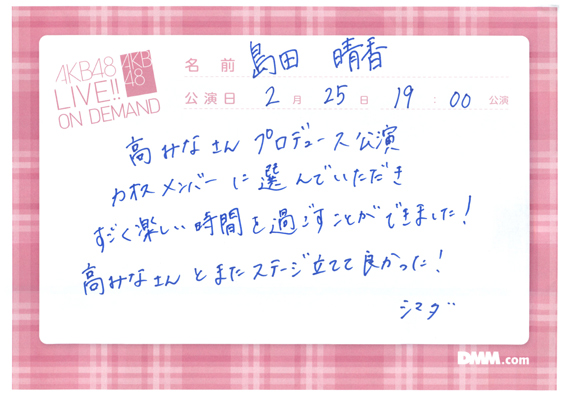 AKB48
LIVE!!
ON DEMAND
AKB
48
名前 島田 晴香
公演日 2月25日 19:00公演
高みなさんプロデュース公演
カオスメンバーに選んでいただき
すごく楽しい時間を過ごすことができました!
高みなさんとまたステージ立てて良かった!
シマダ
DMM.com